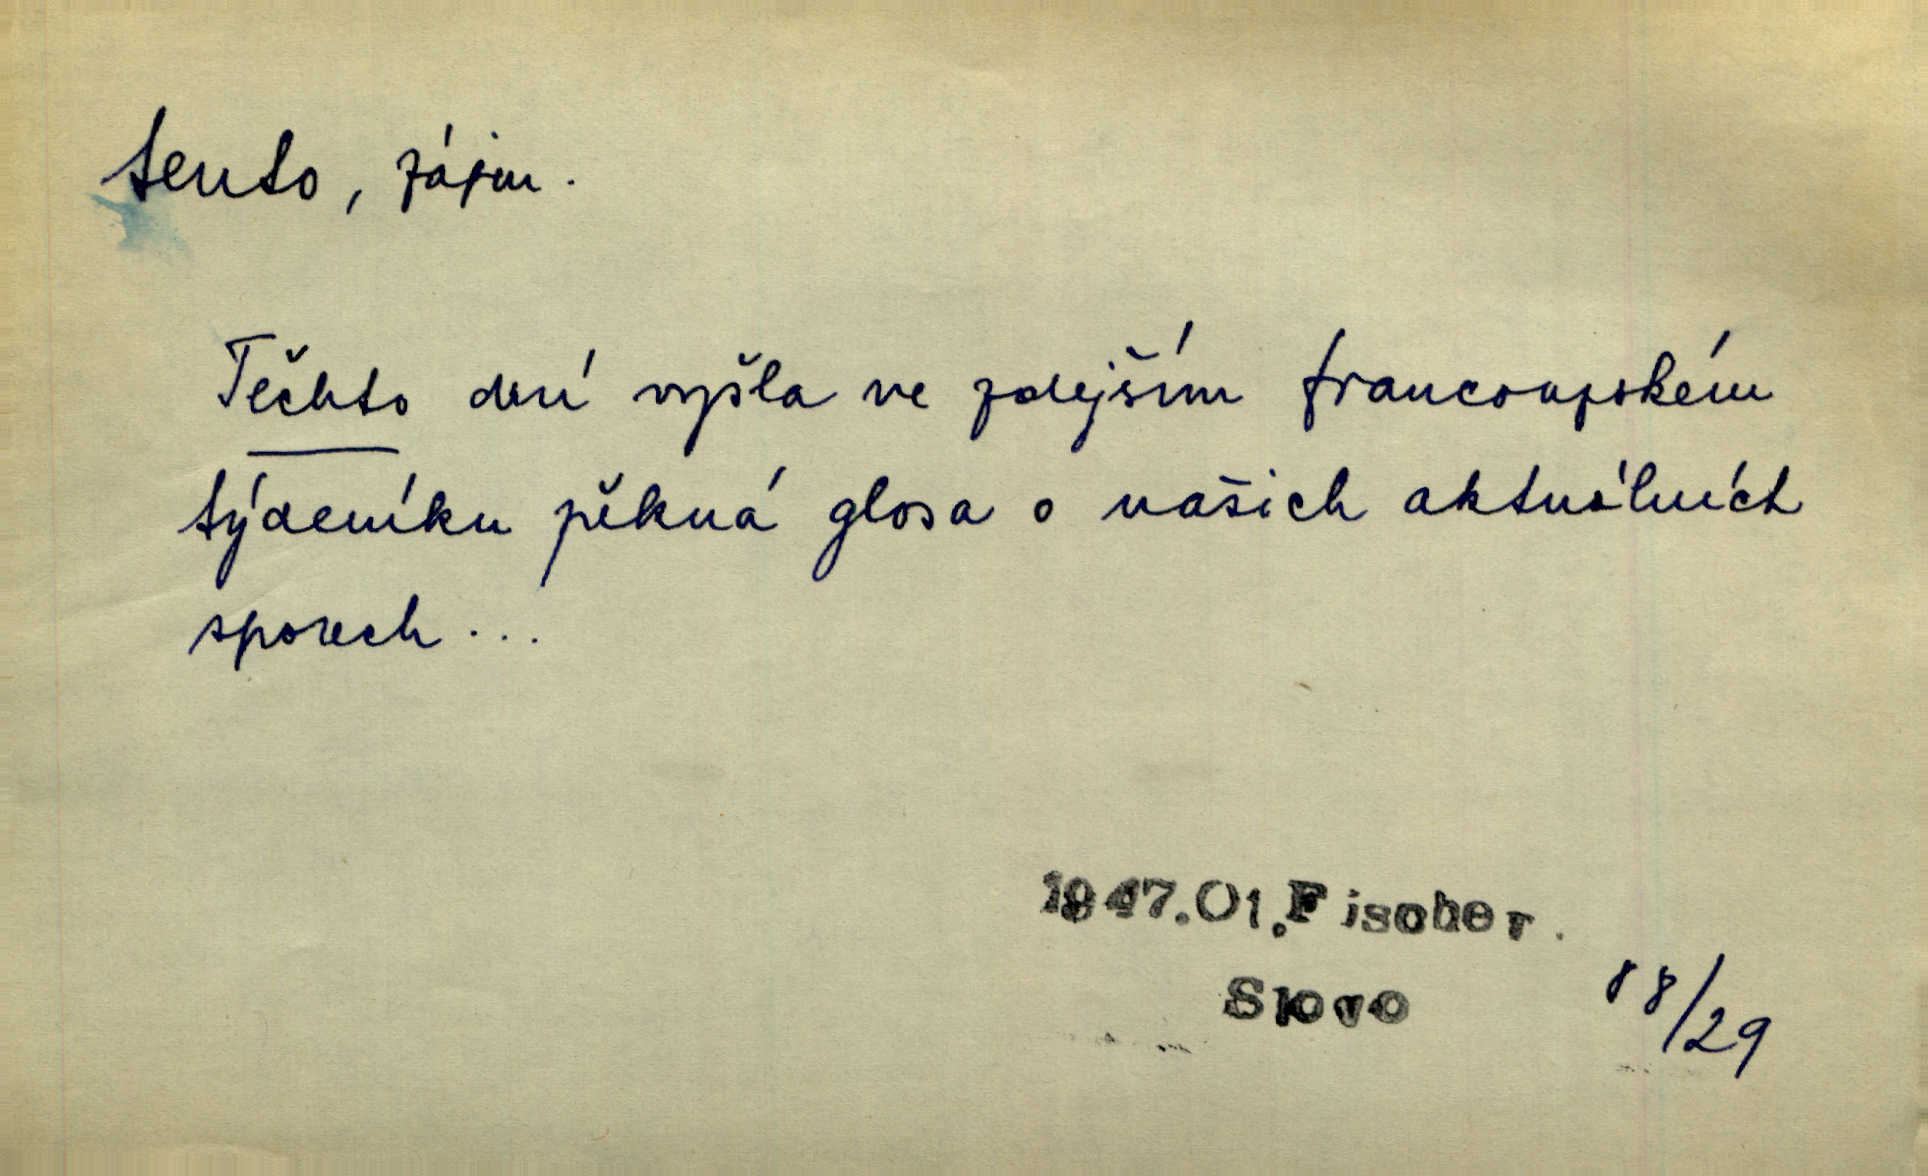 tento, zájm.
Těchto dní vyšla ve zdejším francouzském
týdeníku pěkná glosa o našich aktuálních
sporech...
1947.Ot.Fischer.
Slovo
88/29